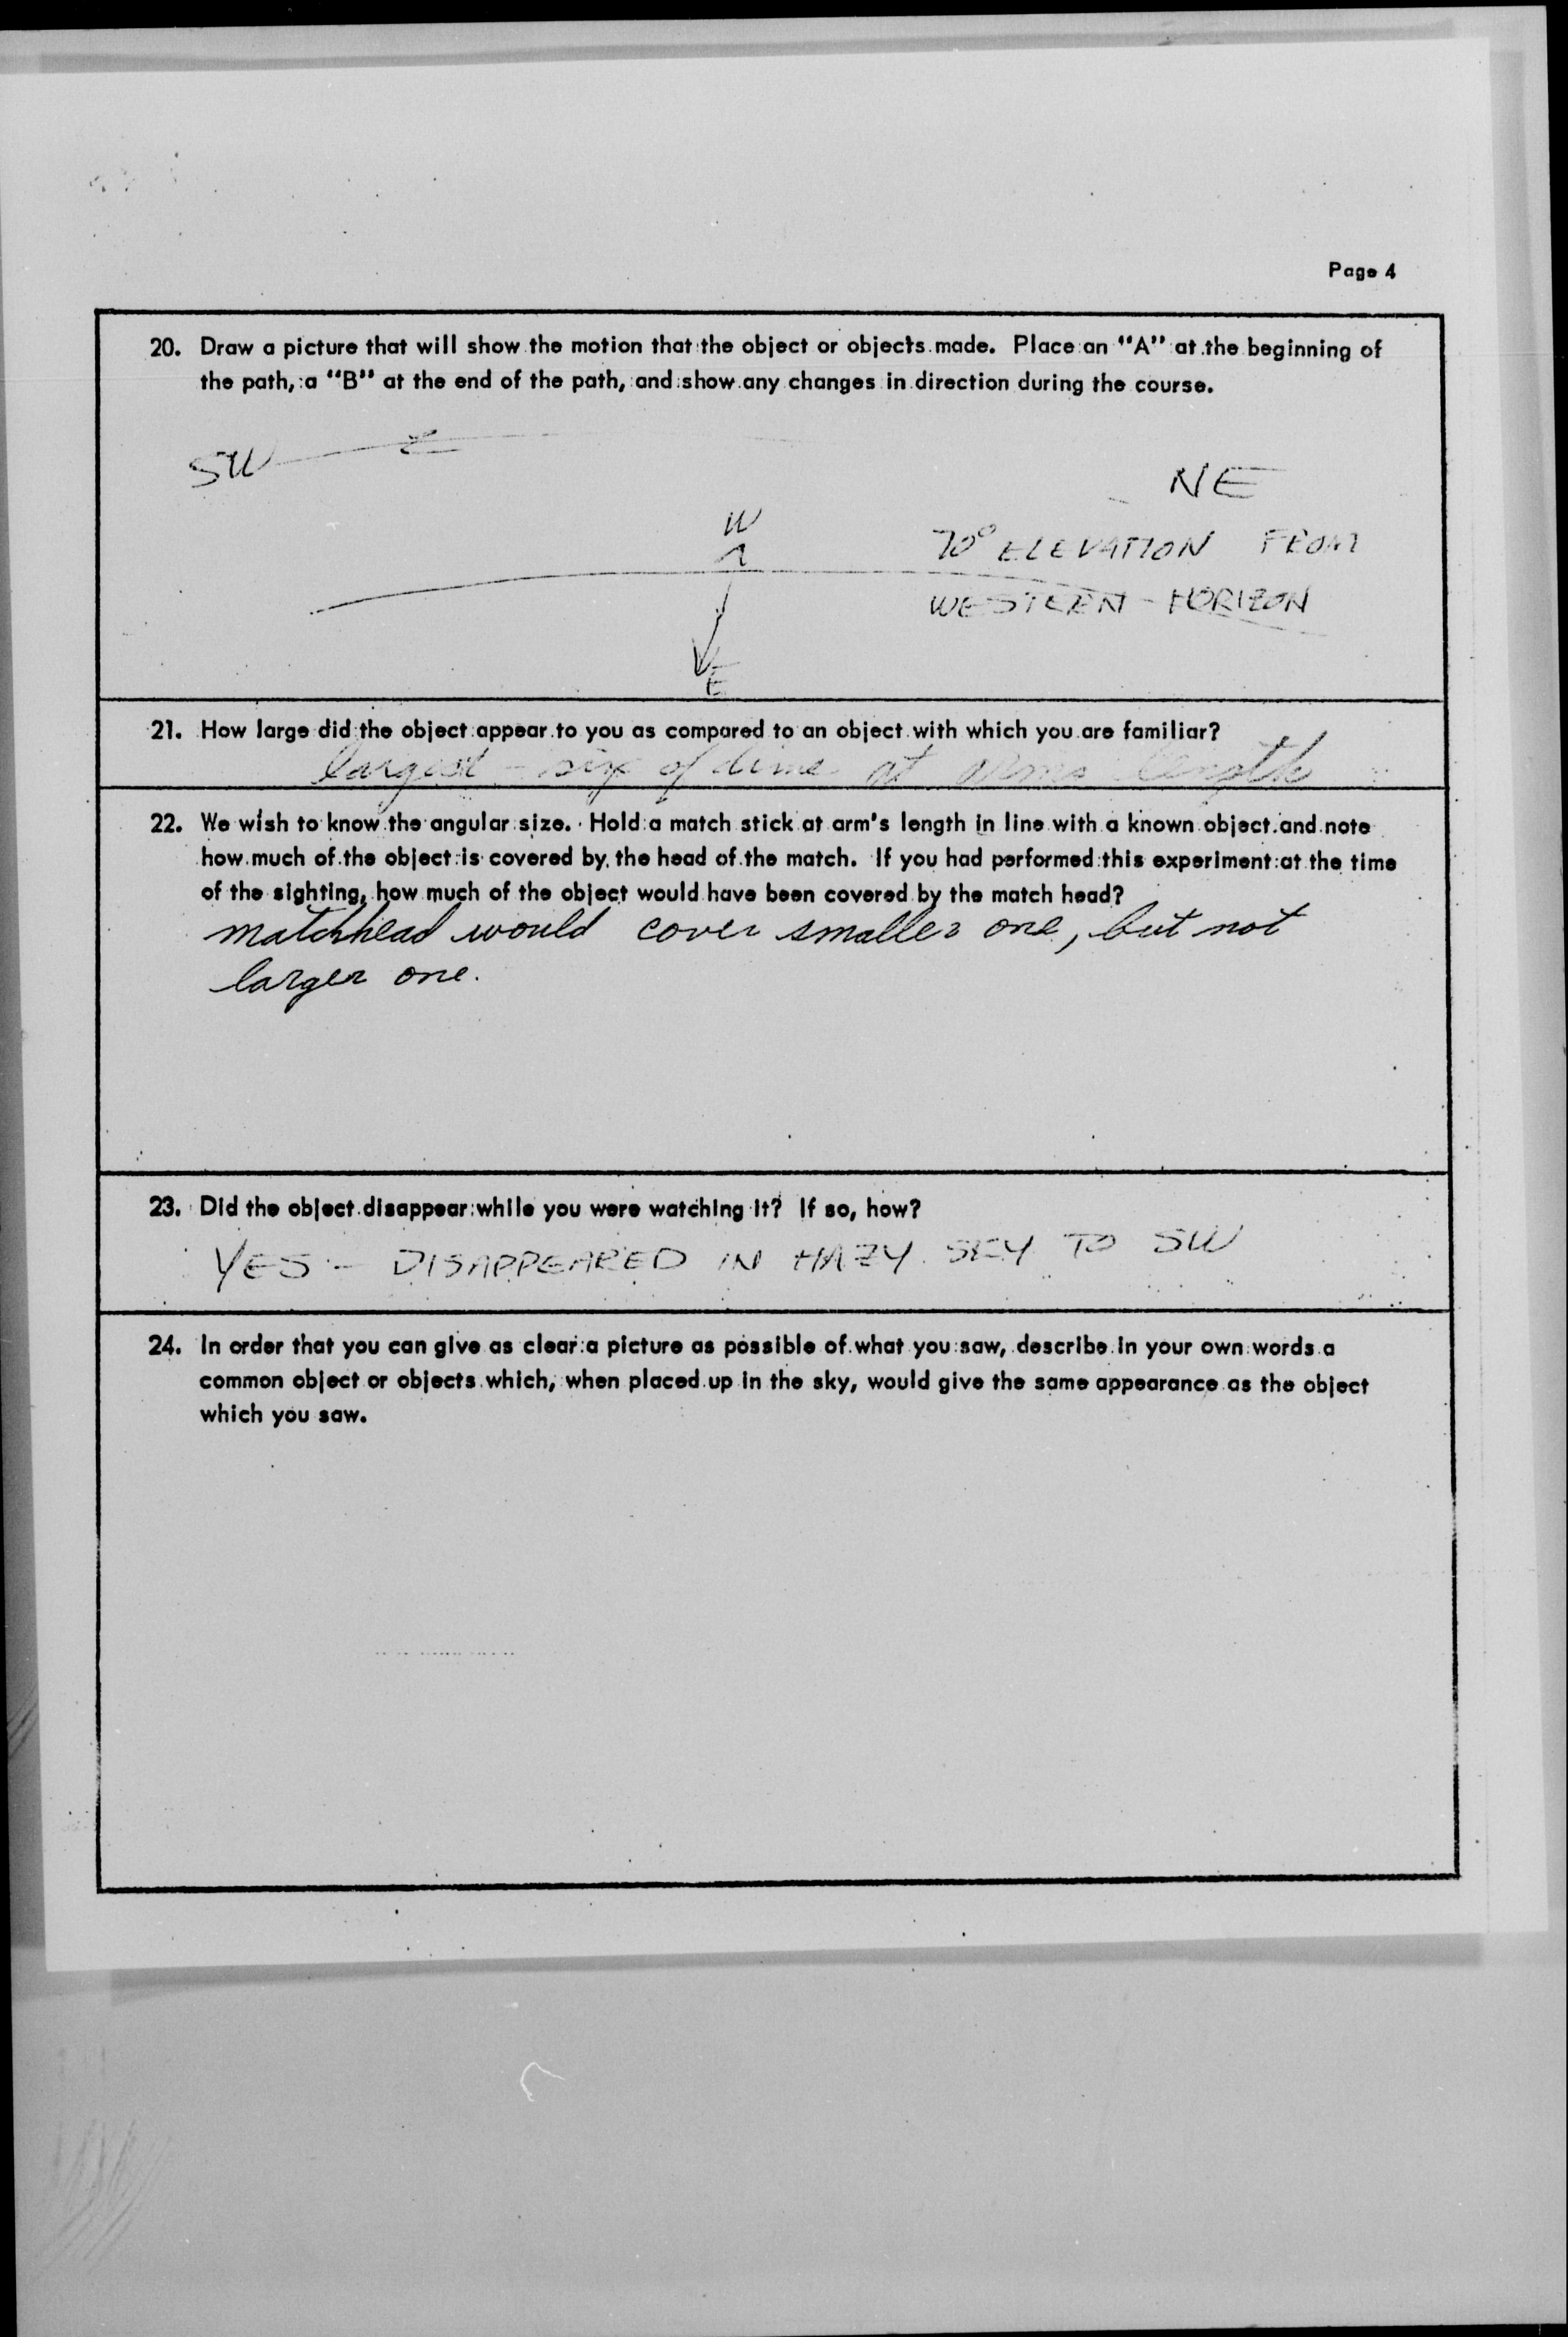 Page 4
20. Draw a picture that will show the motion that the object or objects made. Place an "A" at the beginning of
the path, a "B" at the end of the path, and show any changes in direction during the course.
SW
NE
W
70° ELEVATION FROM
WESTERN HORIZON
E
21. How large did the object appear to you as compared to an object with which you are familiar?
largest - size of dime at arms length
22. We wish to know the angular size. Hold a match stick at arm's length in line with a known object and note
how much of the object is covered by the head of the match. If you had performed this experiment at the time
of the sighting, how much of the object would have been covered by the match head?
matchhead would cover smaller one, but not
larger one.
23. Did the object disappear while you were watching it? If so, how?
YES - DISAPPEARED IN HAZY SKY TO SW
24. In order that you can give as clear a picture as possible of what you saw, describe in your own words a
common object or objects which, when placed up in the sky, would give the same appearance as the object
which you saw.